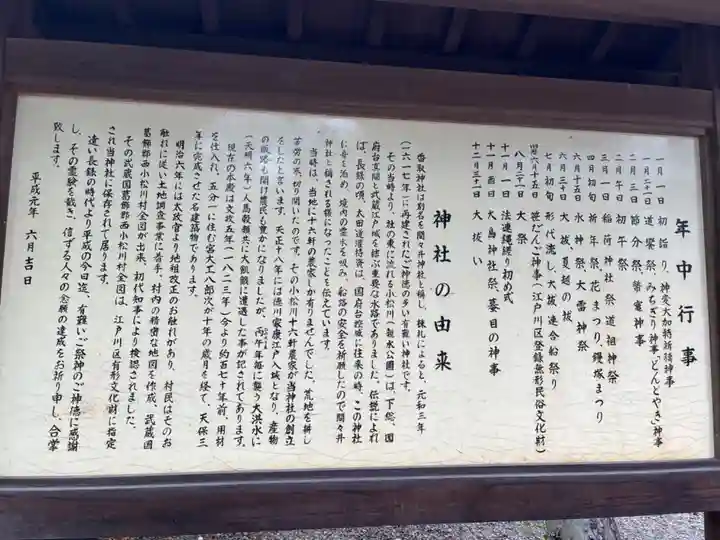 年中行事
一月一日 初詣り、神変大加持祈祷神事
道饗祭、みちぎり神事、どんどやき神事
二月三日 節分祭、蟇竃神事
二月初午 初午祭
三月一日 稲荷神社祭道祖神祭
四月初旬 祈年祭、花まつり、鍾塚まつり
六月十五日 水神祭、大雷神祭
六月三十日 大祓、夏越の祓
七月初旬 形代流し、大祓連合船祭り
旧六月十五日 笹だんご神事(江戸川区登録無形民俗文化財)
八月二十一日 大祭
十月一日 法連縄縒り初め式
十一月酉日 大鳥神社祭、蟇目の神事
十二月三十一日 大祓い
神社の由来
香取神社は別名を間々井神社と称し、棟札によると、元和三年
(一六一七年)に再建されたご神徳の多い有難い神社です。
その当時より、社の東に流れる小松川(親水公園)は、下総、国
府台玄関と武蔵江戸城を結ぶ重要な水路でありました。伝説によれ
ば、長録の頃、太田道灌持資は、国府台控城に往来の時、この神社
に舟を泊め、境内の霊水を汲み、船路の安全を祈願したので間々井
神社と称される様になったことを伝えています。
当時は、当地に十六軒の農家しか有りませんでした。荒地を耕し
苦労の末、切り開いたのです。その小松川十六軒農家が当神社の創立
をしたと言います。天正十八年には徳川家康江戸入城となり、産物
の販路も開け農民も豊かになりましたが、丙午年毎に襲う大洪水に
(天明六年)人馬穀類共に大飢饉に遭遇した事が記されてあります。
現在の本殿は文政五年(一八二三年)今より約百七十年前、用材
を仕入れ、五分一に住む宮大工八郎次が十年の歳月を経て、天保三
年に完成させた名建築物であります。
明治六年には太政官より地租改正のお触れがあり、村民はそのお
触れに従い土地調査事業に着手、村内の精密な地図を作成、武蔵国
葛飾郡西小松川村全図が出来、初代知事により検認されました。
その武蔵国葛飾郡西小松川村全図は、江戸川区有形文化財に指定
され当神社に保存されて居ります。
遠い長録の時代より平成の今日迄、有難いご祭神のご神徳に感謝
し、その霊験を戴き、信ずる人々の念願の達成をお祈り申し、合掌
致します。
平成元年 六月吉日